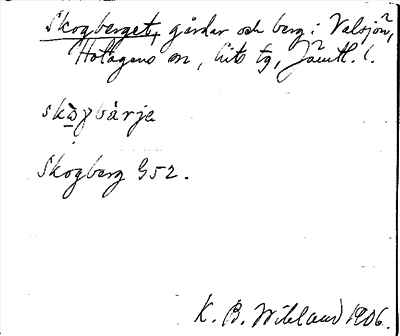 Skogberget, gårdar och berg i Valsjön,
Hotagens sn, Lits tg, Jämtl. l.
skɔ̱gbärje
Skogberg G52.
K. B. Wiklund 1906.